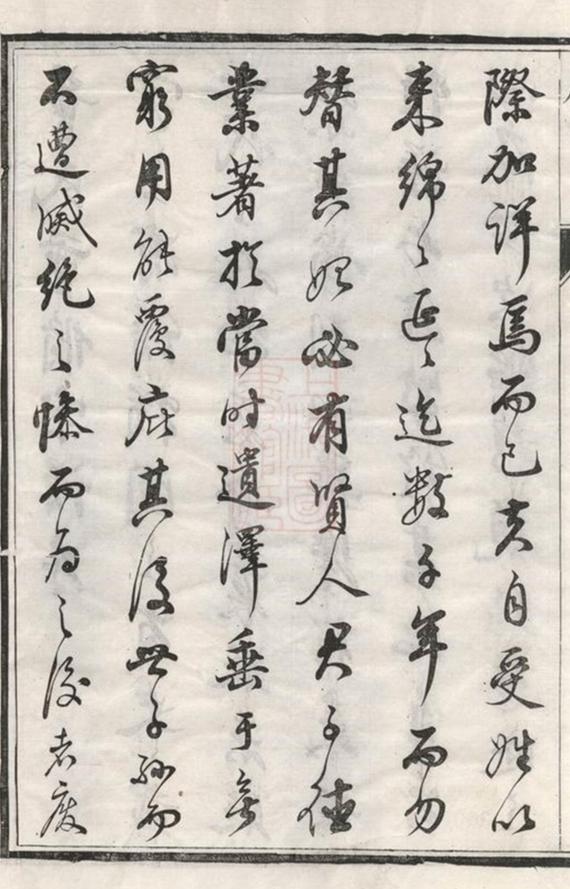 際加詳焉而已夫自受姓以
来綿〻延〻迄數千年而勿
替其始必有賢人君子德
業著於當时遺澤垂于無
窮用能覆庇其後世子孫而
不遭滅绝之慘而为之後者废